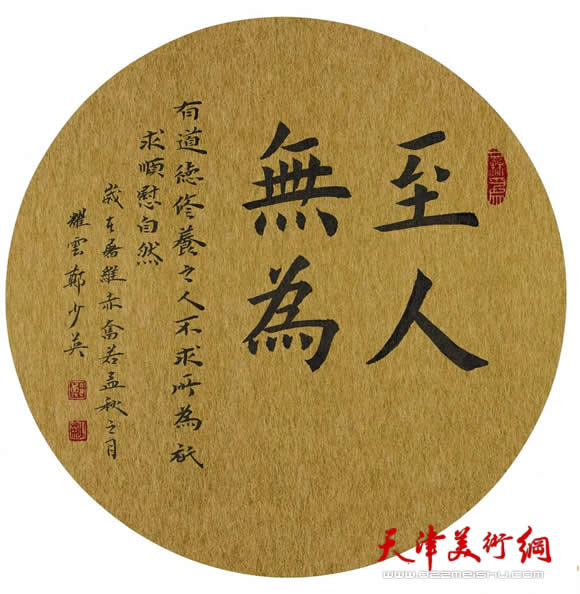 至人
無為
有道德修養之人不求所為祇
求順慰自然
歲在屠維赤奮若孟秋之月
耀雲鄭少英
天津美術網
www.022meishu.com